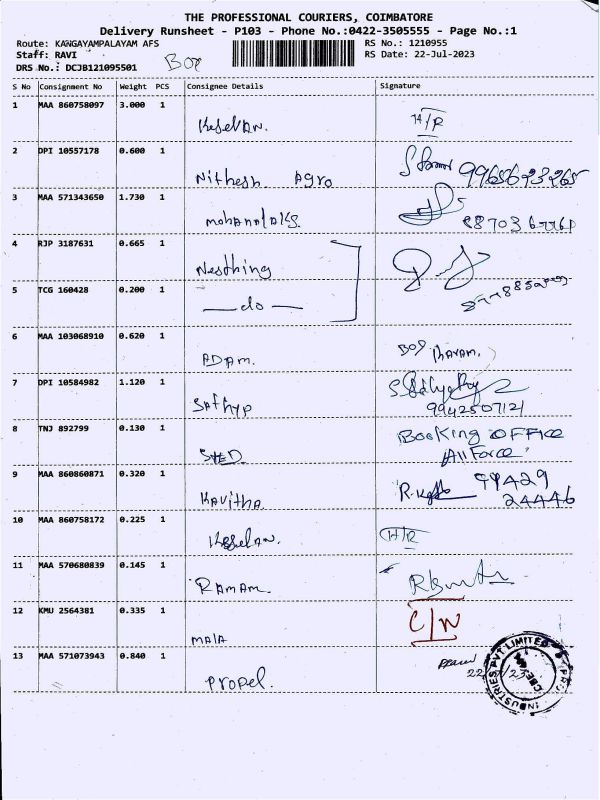 THE PROFESSIONAL COURIERS, COIMBATORE
Delivery Runsheet - P103 - Phone No.:0422-3505555 - Page No.:1
Route: KANGAYAMPALAYAM AFS RS No.: 1210955
Staff: RAVI RS Date: 22-Jul-2023
DRS No.: DCJB121095501
S No Consignment No Weight PCS Consignee Details Signature
1 MAA 860758097 3.000 1 Kesevan. H/R
2 DPI 10557178 0.600 1 Nithesh Agro 9965623265
3 MAA 571343650 1.730 1
4 RJP 3187631 0.665 1 Nesthing
5 TCG 160428 0.200 1 —do—
6 MAA 103910 0.620 1 ADAM.
7 DPI 10584982 1.120 1 Sathyp
9942507121
8 TNJ 892799 0.130 1 Booking OFFICE
AirForce
9 MAA 860860871 0.320 1 Kavitha. 99429
24446
10 MAA 860758172 0.225 1 H/R
11 MAA 570680839 0.145 1 RAMAM.
12 KMU 2564381 0.335 1 MALA C/N
13 MAA 571073943 0.840 1 Propel.
INDUSTRIES PVT LIMITED